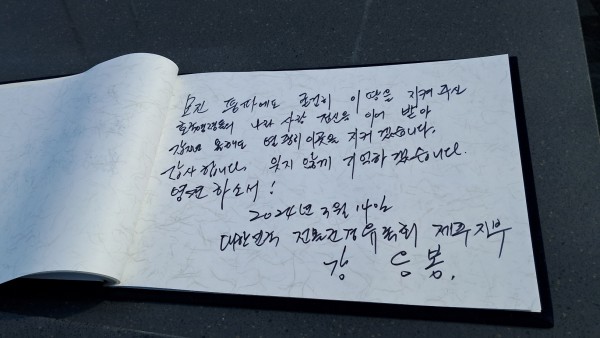 모진 풍파에도 굳건히 이 땅을 지켜 주신
호국영령들의 나라 사랑 정신을 이어 받아
영원히 이곳을 지켜 가겠습니다.
감사합니다. 잊지 않게 기억하겠습니다.
영면하소서!
2024년 3월 14일
대한민국 전몰군경유족회 제주지부
강 응 봉.